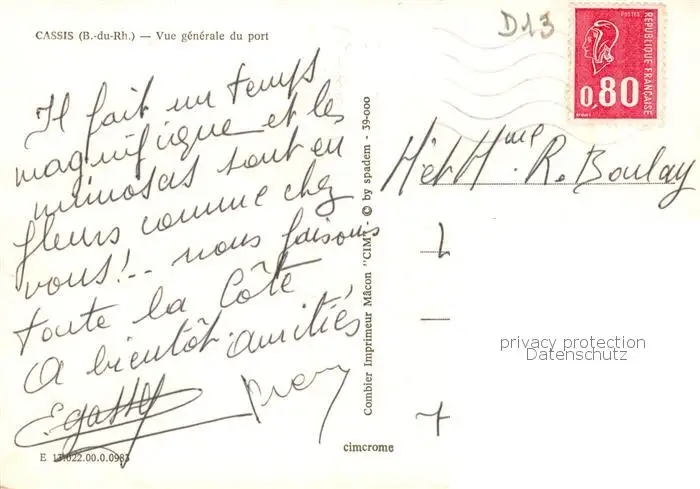 CASSIS (B.-du-Rh.) — Vue générale du port
D13
POSTES
RÉPUBLIQUE FRANÇAISE
0,80
Il fait un temps
magnifique et les
mimosas sont en
fleurs comme chez
vous!.. nous faisons
toute la Côte
A bientôt. amitiés
Combier Imprimeur Mâcon "CIM" - © by spadem - 39-000
M et Mme R. Boulay
privacy protection
Datenschutz
cimcrome
E 13.022.00.0.0983